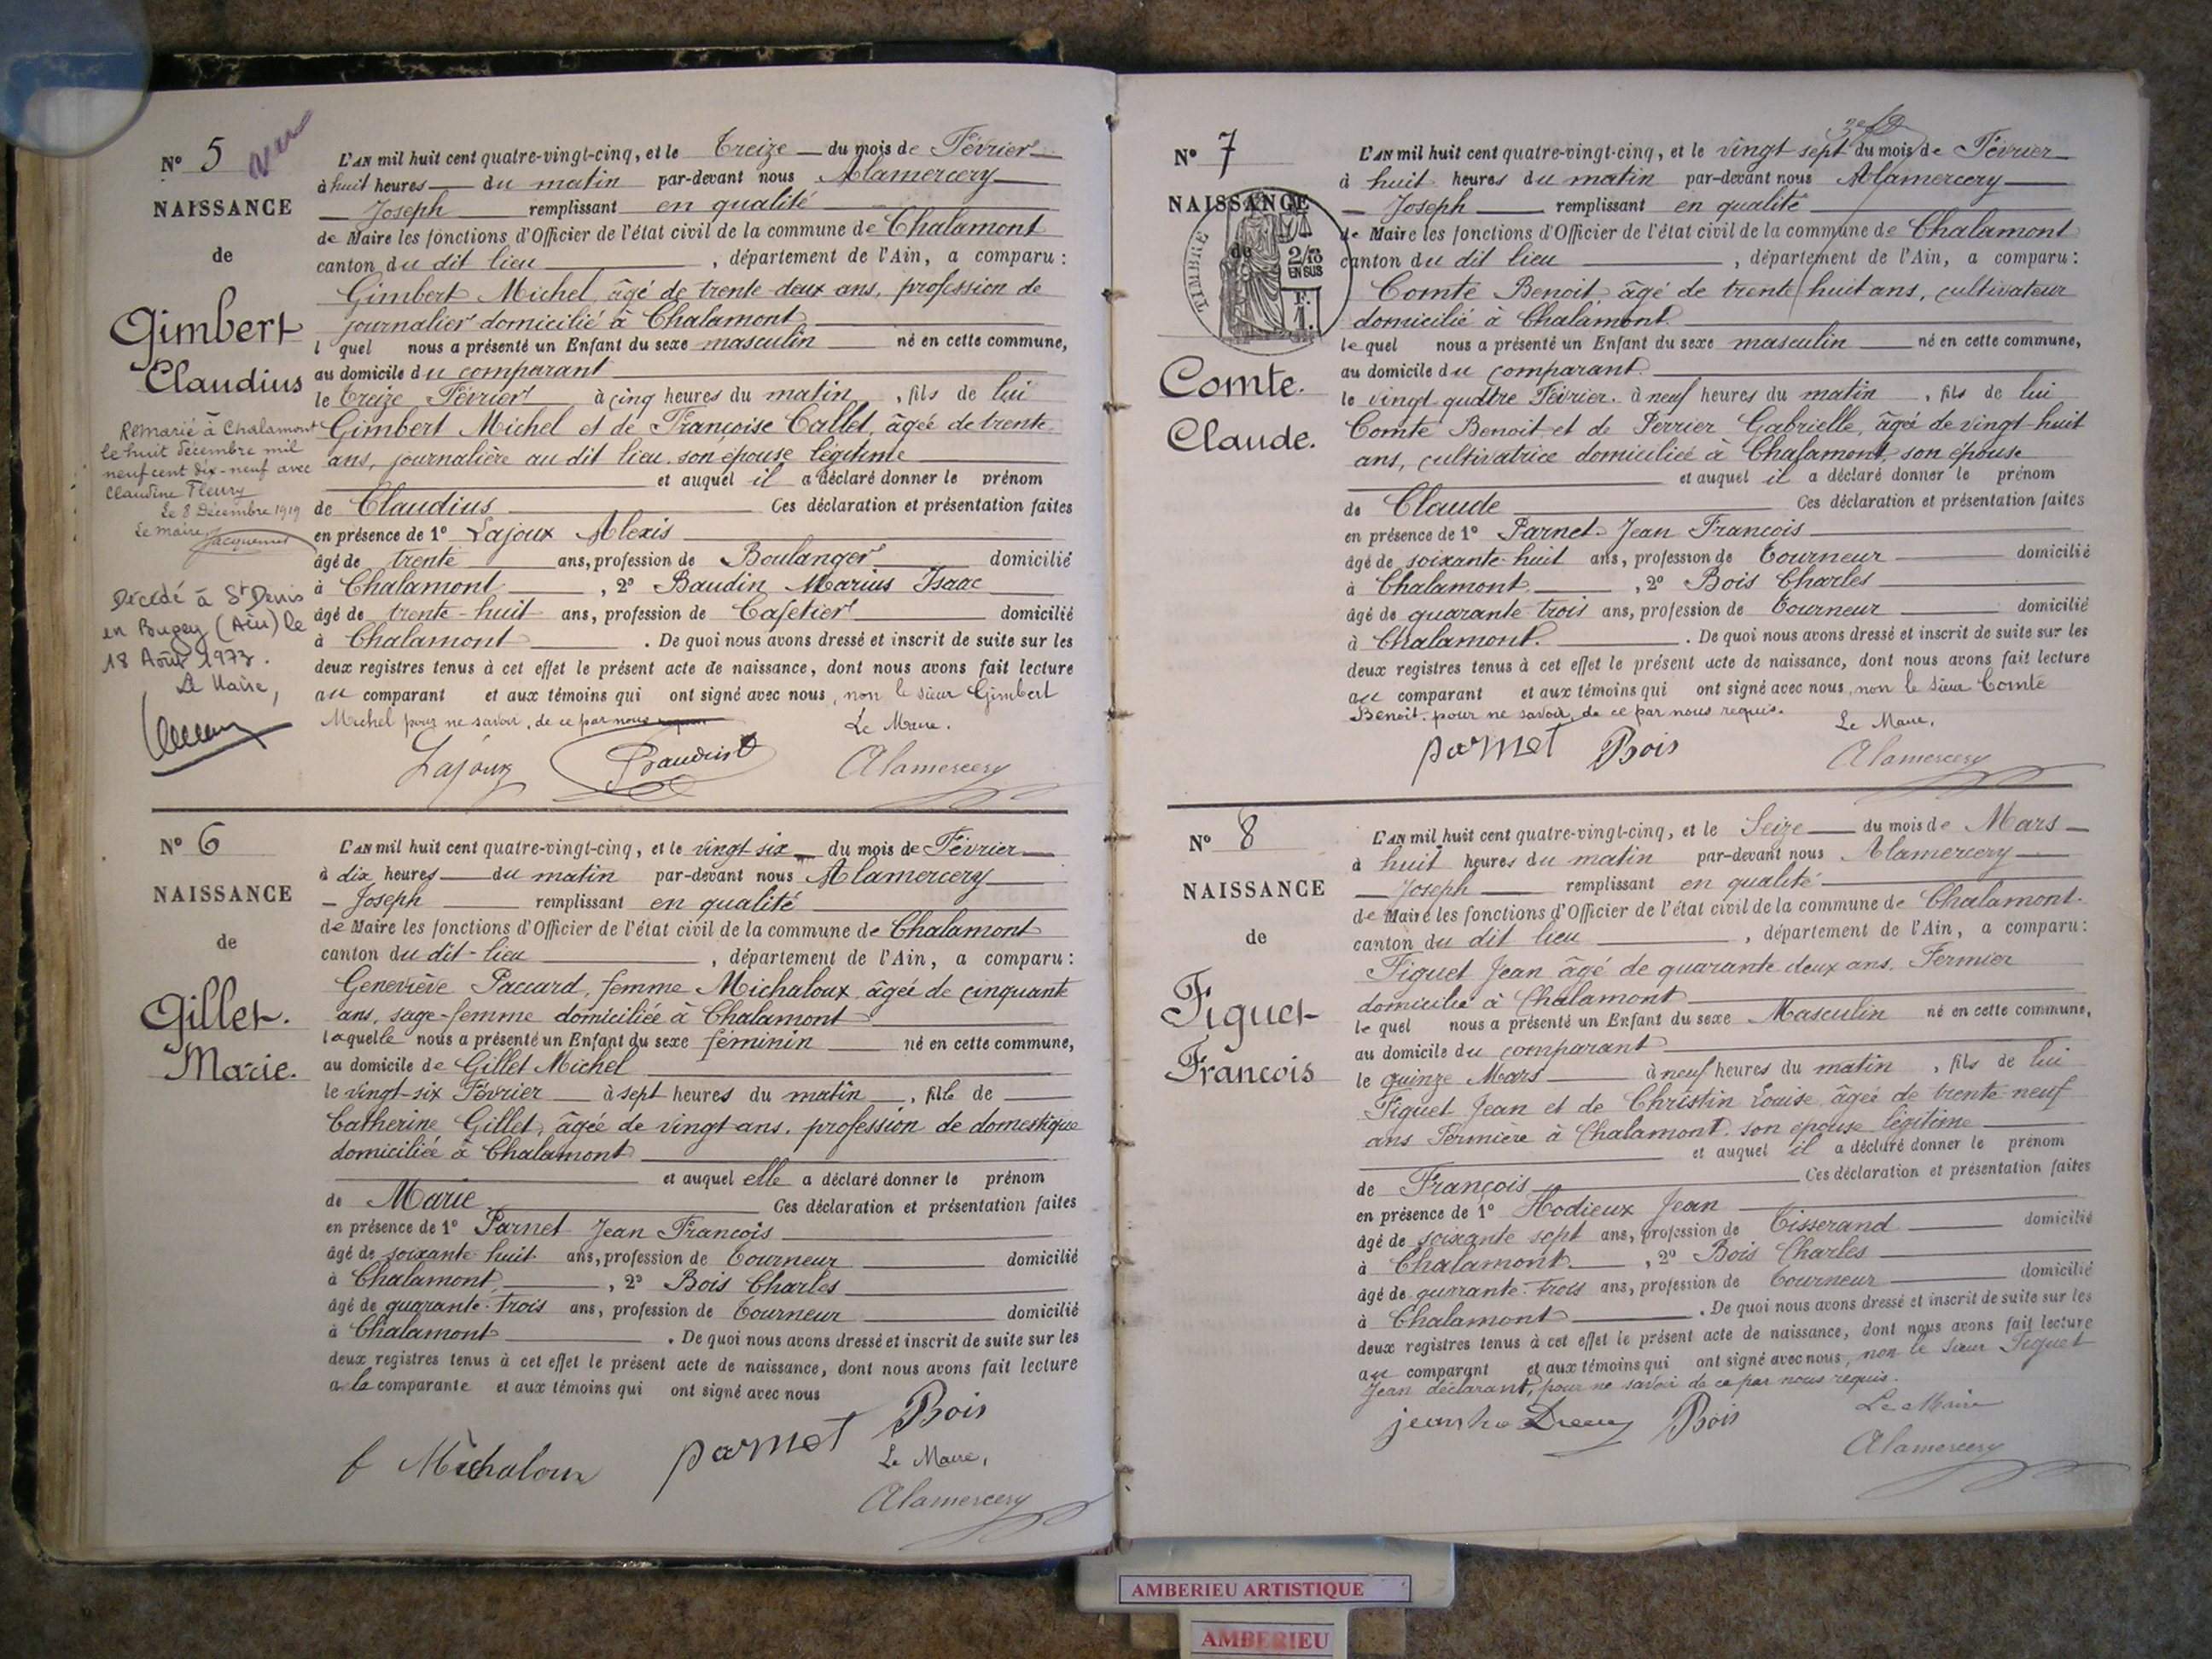 N° 5
NAISSANCE
de
Gimbert
Claudius
Remarié à Chalamont
le huit Décembre mil
neuf cent dix-neuf avec
Claudine Fleury
Le 8 Décembre 1919
Le maire,
Jacquemet
Décédé à St Denis
en Bugey (Ain) le
18 Août 1973.
Le Maire,
L'AN mil huit cent quatre-vingt-cinq, et le Treize du mois de Février
à huit heures du matin par-devant nous Alamercery
Joseph remplissant en qualité
de Maire les fonctions d'Officier de l'état civil de la commune de Chalamont
canton du dit lieu , département de l'Ain, a comparu :
Gimbert Michel, âgé de trente deux ans, profession de
journalier domicilié à Chalamont
l quel nous a présenté un Enfant du sexe masculin né en cette commune,
au domicile du comparant
le Treize Février à cinq heures du matin , fils de lui
Gimbert Michel et de Françoise Callet, âgée de trente
ans, journalière au dit lieu, son épouse légitime
et auquel il a déclaré donner le prénom
de Claudius Ces déclaration et présentation faites
en présence de 1° Lajoux Alexis
âgé de trente ans, profession de Boulanger domicilié
à Chalamont , 2° Baudin Marius Isaac
âgé de trente-huit ans, profession de Cafetier domicilié
à Chalamont . De quoi nous avons dressé et inscrit de suite sur les
deux registres tenus à cet effet le présent acte de naissance, dont nous avons fait lecture
au comparant et aux témoins qui ont signé avec nous, non le sieur Gimbert
Michel pour ne savoir, de ce par nous requis
Le Maire.
Lajoux Baudin Alamercery
N° 6
NAISSANCE
de
Gillet.
Marie.
L'AN mil huit cent quatre-vingt-cinq, et le vingt six du mois de Février
à dix heures du matin par-devant nous Alamercery
Joseph remplissant en qualité
de Maire les fonctions d'Officier de l'état civil de la commune de Chalamont
canton du dit-lieu , département de l'Ain, a comparu :
Geneviève Paccard, femme Michaloux, âgée de cinquante
ans, sage-femme domiciliée à Chalamont
laquelle nous a présenté un Enfant du sexe féminin né en cette commune,
au domicile de Gillet Michel
le vingt-six Février à sept heures du matin , fille de
Catherine Gillet, âgée de vingt ans, profession de domestique
domiciliée à Chalamont
et auquel elle a déclaré donner le prénom
de Marie Ces déclaration et présentation faites
en présence de 1° Parnet Jean François
âgé de soixante huit ans, profession de Tourneur domicilié
à Chalamont , 2° Bois Charles
âgé de quarante-trois ans, profession de Tourneur domicilié
à Chalamont . De quoi nous avons dressé et inscrit de suite sur les
deux registres tenus à cet effet le présent acte de naissance, dont nous avons fait lecture
a la comparante et aux témoins qui ont signé avec nous
f Michaloux parnet Bois
Le Maire,
Alamercery
N° 7
NAISSANCE
de
TIMBRE
2/10
EN SUS
F.
1.
Comte.
Claude.
L'AN mil huit cent quatre-vingt-cinq, et le vingt sept du mois de Février
à huit heures du matin par-devant nous Alamercery
Joseph remplissant en qualité
de Maire les fonctions d'Officier de l'état civil de la commune de Chalamont
canton du dit lieu , département de l'Ain, a comparu :
Comte Benoit, âgé de trente huit ans, cultivateur
domicilié à Chalamont.
le quel nous a présenté un Enfant du sexe masculin né en cette commune,
au domicile du comparant.
le vingt quatre Février. à neuf heures du matin , fils de lui
Comte Benoit et de Perrier Gabrielle, âgée de vingt huit
ans, cultivatrice domiciliée à Chalamont, son épouse
et auquel il a déclaré donner le prénom
de Claude Ces déclaration et présentation faites
en présence de 1° Parnet Jean François
âgé de soixante-huit ans, profession de Tourneur domicilié
à Chalamont , 2° Bois Charles
âgé de quarante-trois ans, profession de Tourneur domicilié
à Chalamont. . De quoi nous avons dressé et inscrit de suite sur les
deux registres tenus à cet effet le présent acte de naissance, dont nous avons fait lecture
au comparant et aux témoins qui ont signé avec nous, non le sieur Comte
Benoit. pour ne savoir, de ce par nous requis.
Le Maire,
parnet Bois Alamercery
N° 8
NAISSANCE
de
Figuet
François
L'AN mil huit cent quatre-vingt-cinq, et le Seize du mois de Mars
à huit heures du matin par-devant nous Alamercery
Joseph remplissant en qualité
de Maire les fonctions d'Officier de l'état civil de la commune de Chalamont.
canton du dit lieu , département de l'Ain, a comparu :
Figuet Jean âgé de quarante deux ans. Fermier
domicilié à Chalamont
le quel nous a présenté un Enfant du sexe Masculin né en cette commune,
au domicile du comparant
le quinze Mars à neuf heures du matin , fils de lui
Figuet Jean et de Christin Louise âgée de trente-neuf
ans Fermière à Chalamont. son épouse légitime
et auquel il a déclaré donner le prénom
de François Ces déclaration et présentation faites
en présence de 1° Hodieux Jean
âgé de soixante sept ans, profession de Tisserand domicilié
à Chalamont , 2° Bois Charles
âgé de quarante-trois ans, profession de Tourneur domicilié
à Chalamont . De quoi nous avons dressé et inscrit de suite sur les
deux registres tenus à cet effet le présent acte de naissance, dont nous avons fait lecture
au comparant et aux témoins qui ont signé avec nous, non le sieur Figuet
Jean déclarant, pour ne savoir de ce par nous requis.
Bois Le Maire
Alamercery
AMBERIEU ARTISTIQUE
AMBERIEU